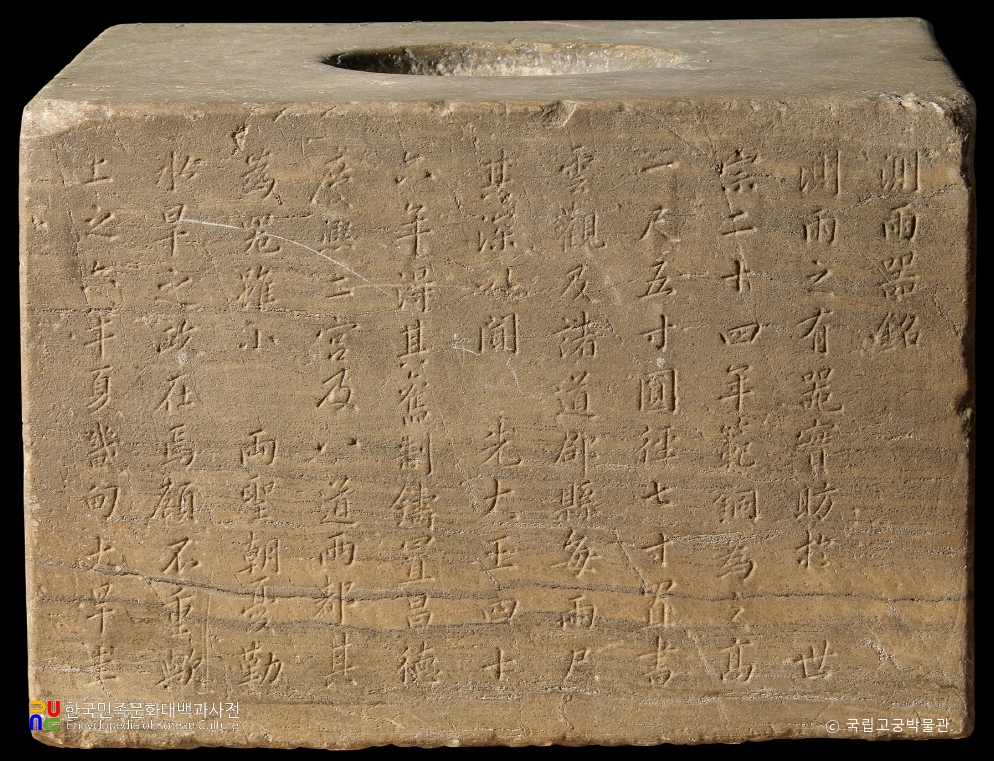 測雨器銘
測雨之有器實昉於 世
宗二十四年範銅為之高
一尺五寸圓徑七寸置書
雲觀及諸道郡縣每雨尺
其深以聞 先大王四十
六年得其舊制鑄置昌德
慶熙二宮及八道兩都其
為器雖小 兩聖朝憂勤
水旱之政在焉顧不重歟
上之六年夏畿甸大旱圭
한국민족문화대백과사전
Encyclopedia of Korean Culture
© 국립고궁박물관